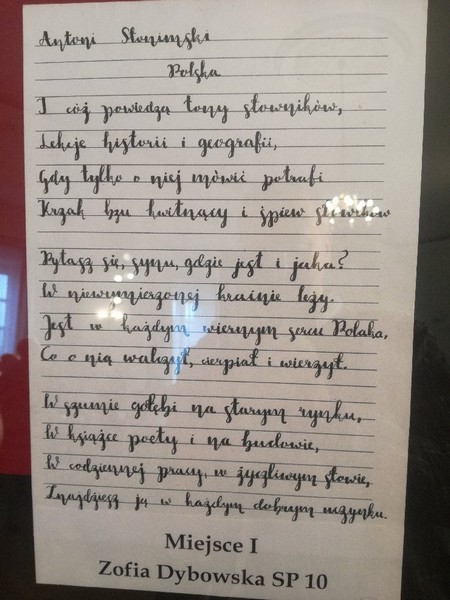 Antoni Słonimski
Polska
I cóż powiedzą tomy słowników,
Lekcje historii i geografii,
Gdy tylko o niej mówić potrafi
Krzak bzu kwitnący i śpiew słowików
Pytasz się, synu, gdzie jest i jaka?
W niewymierzonej krainie leży.
Jest w każdym wiernym sercu Polaka,
Co o nią walczył, cierpiał i wierzył.
W szumie gołębi na starym rynku,
W książce poety i na budowie,
W codziennej pracy, w życzliwym słowie,
Znajdziesz ją w każdym dobrym uczynku.
Miejsce I
Zofia Dybowska SP 10